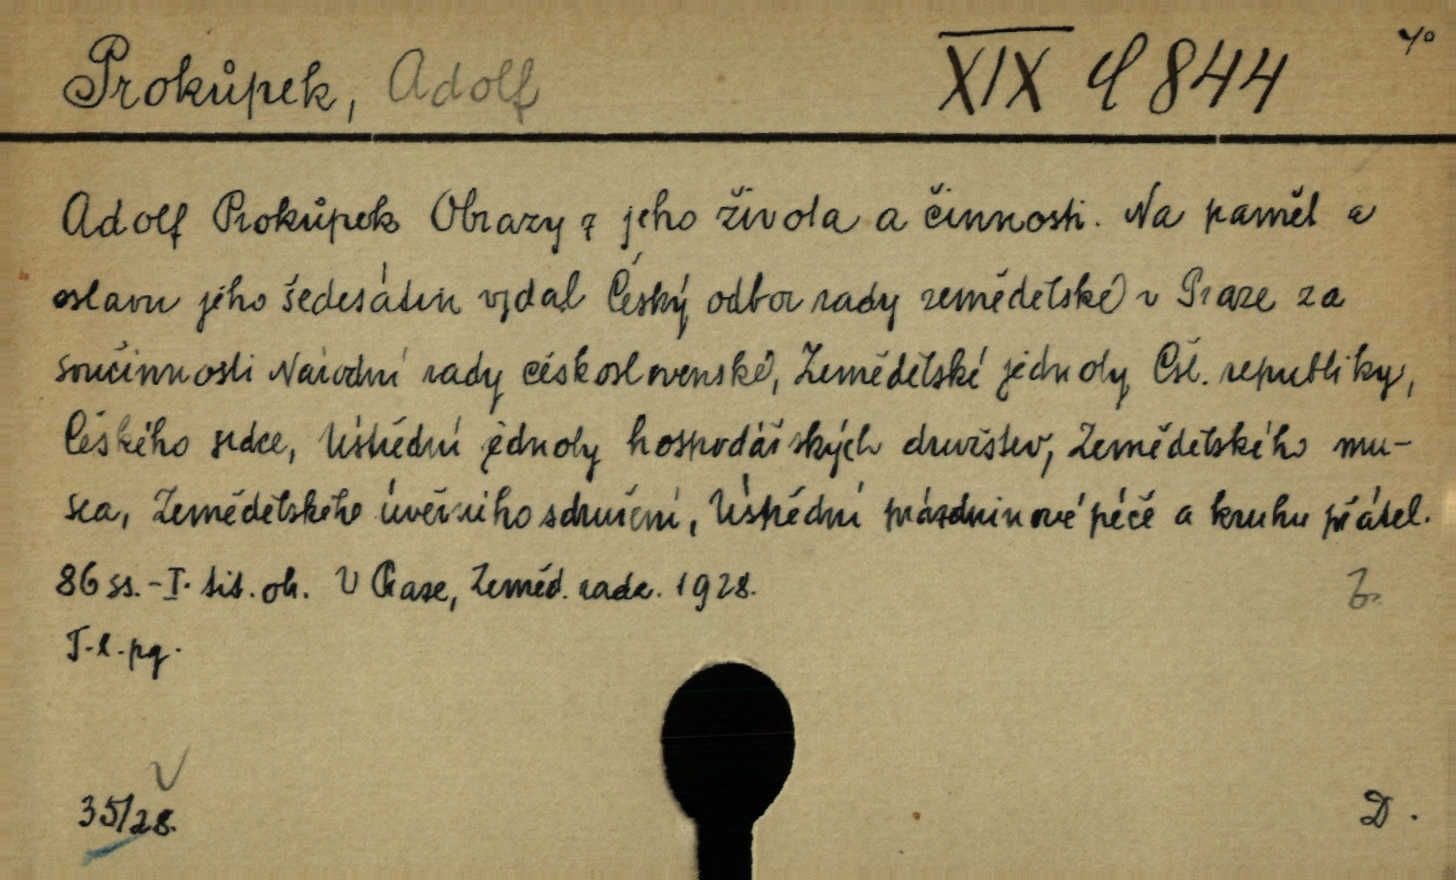 Prokůpek, Adolf XIX C 844 4°
Adolf Prokůpek Obrazy z jeho života a činnosti. Na paměť a
oslavu jeho šedesátin vydal Český odbor rady zemědělské v Praze za
součinnosti Národní rady československé, Zemědělské jednoty Čsl. republiky,
Českého srdce, Ústřední jednoty hospodářských družstev, Zemědělského mu-
sea, Zemědělského úvěrního sdružení, Ústřední prázdninové péče a kruhu přátel.
86 ss. - I. tit. ob. V Praze, Zeměd. rada. 1928.
T.l.pg.
35/28.
D.